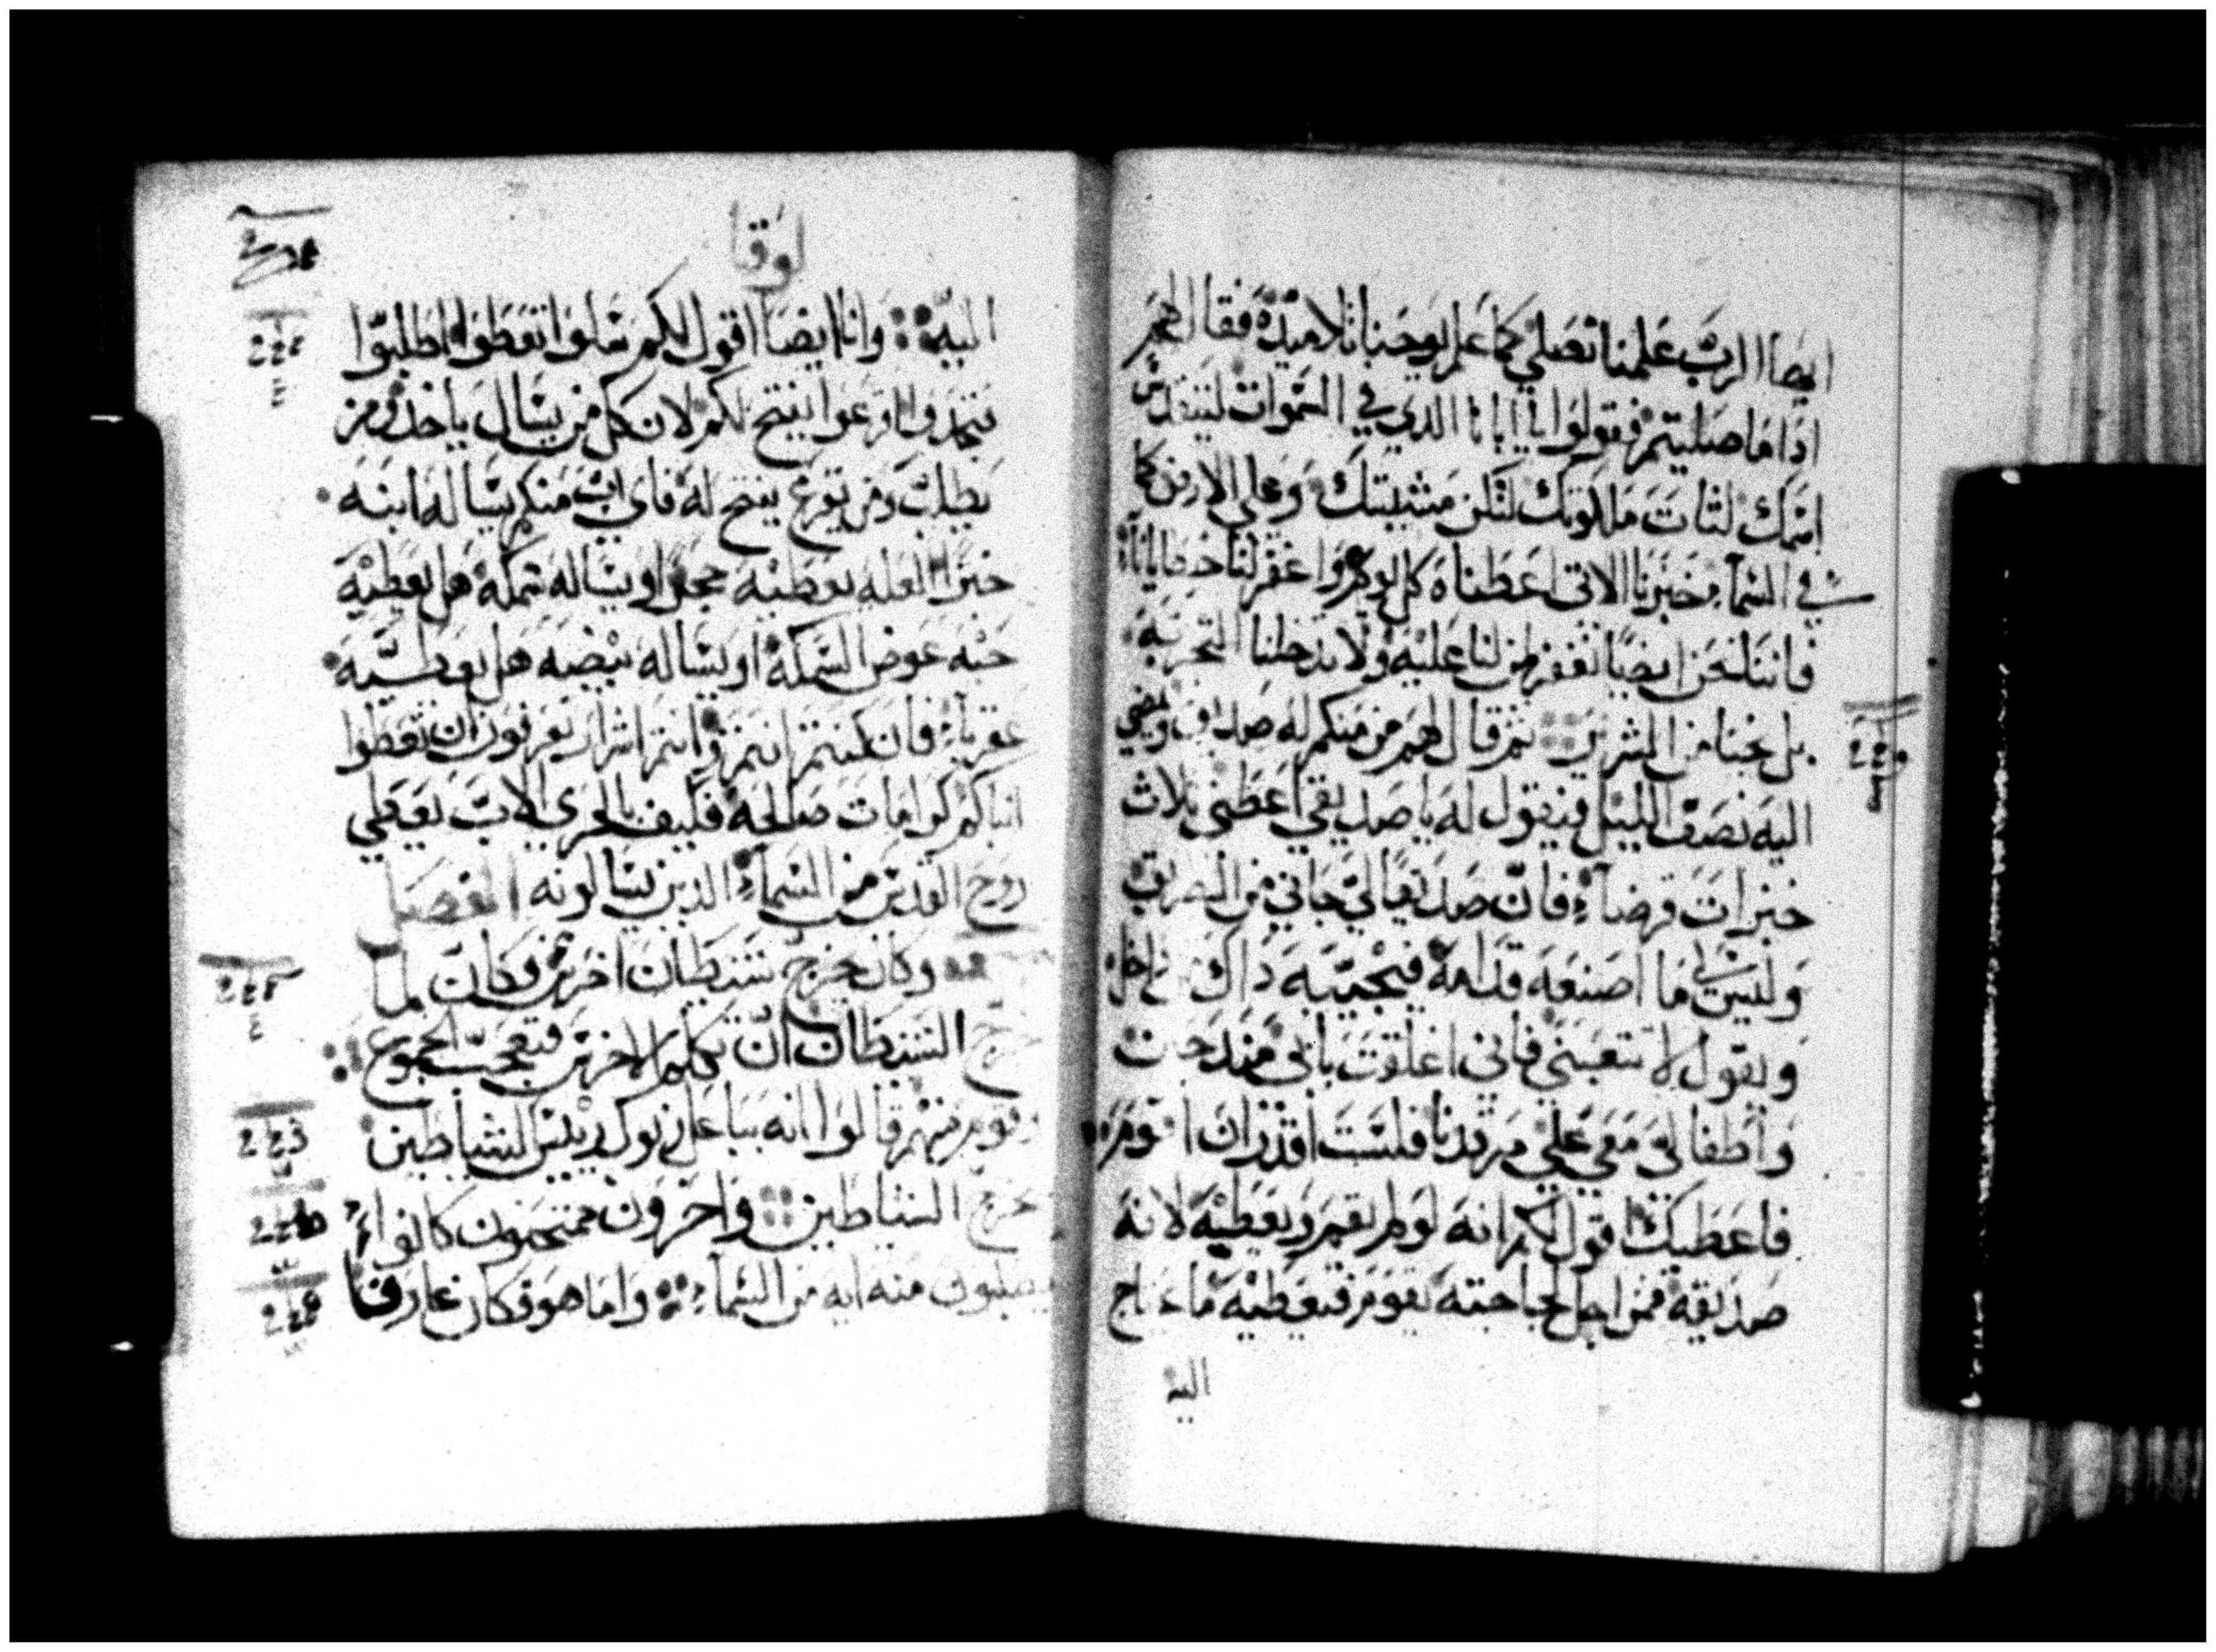 ايضا الرب علمنا نصلي كما علم يوحنا تلاميذه فقال لهم
اذا ما صليتم فقولوا يا ابانا الدي في السموات ليتقدس
اسمك لتات ملكوتك لتكن مشييتك وعلي الارض كما
في السمآء خبزنا الاتي اعطناه كل يوم واغفر لنا خطايانا
فاننا نحن ايضا نغفر لمن لنا عليه ولا تدخلنا التجربه
بل نجنا من الشرير ثم قال لهم من منكم له صديق ويمضي
اليه نصف الليل فيقول له يا صديقي اعطني تلات
خبزات قرضآء فان صديقا لي جاني من الطريق
وليس لي ما اصنعه قدامه فيجيبه داك داخل
ويقول لا تتعبني فاني اغلقت بابي
واطفالي معي علي مرقدنا فلست اقدر ان اقوم
فاعطيك اقول لكم انه لو لم يقم ويعطيه لانه
صديقه فمن اجل لجاجته يقوم فيعطيه ما يحتاج
اليه
لوقا
اليه وانا ايضا اقول لكم سلوا تعطوا اطلبوا
تجدوا اقرعوا يفتح لكم لان كل من يسال ياخد ومن
يطلب ومن يقرع يفتح له فاي اب منكم يساله ابنه
خبزا لعله يعطيه حجرا او يساله سمكه هل يعطيه
حيه عوض السمكه او يساله بيضه هل يعطيه
عقربآء فان كنتم انتم وانتم اشرار تعرفون ان تعطوا
ابناكم كرامات صالحه فكيف بالحري الاب يعطي
روح القدس من السمآء الدين يسالونه الفصل
وكان يخرج شيطان اخرس فكان لما
خرج الشيطان ان تكلم الاخرس فتعجب الجموع
وقوم منهم قالوا انه بباعل زبول رييس الشياطين
يخرج الشياطين واخرون ممتحنون كانوا
يطلبون منه ايه من السمآء واما هو فكان عارفا